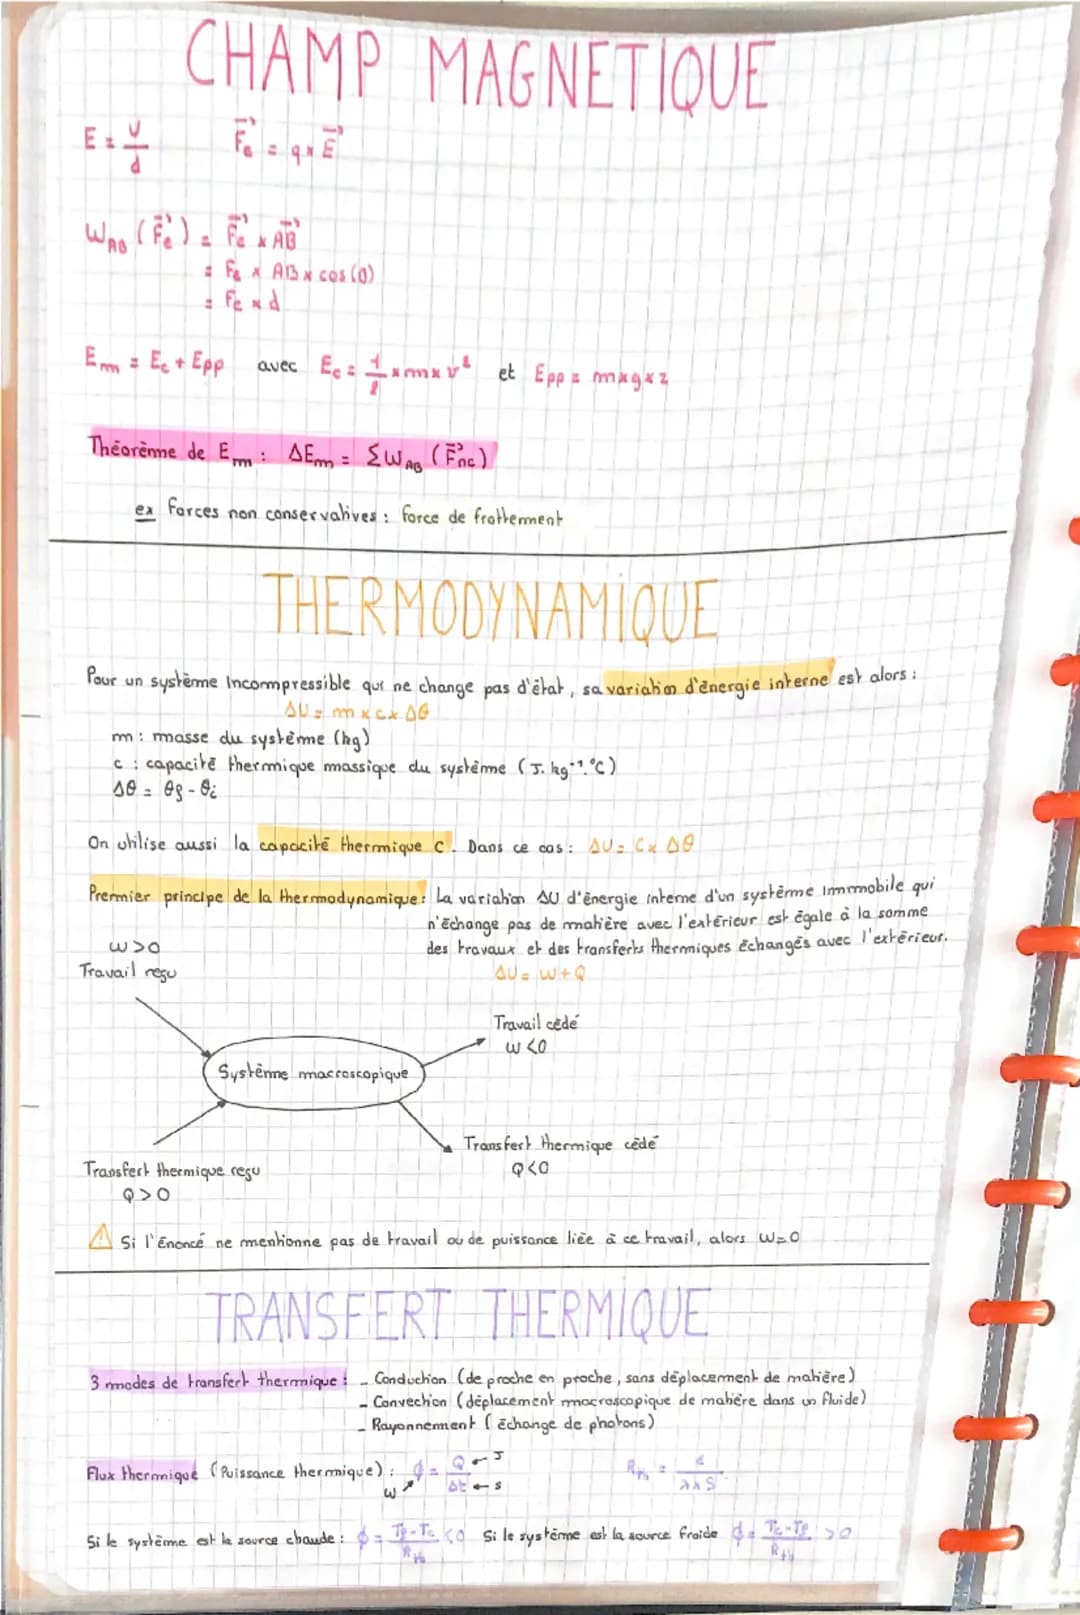 CHAMP MAGNETIQUE
E = U/d    F⃗e = q x E⃗
W_AB (F⃗e) = F⃗e x AB⃗
= Fe x AB x cos(0)
= Fe x d
Em = Ec + Epp avec Ec = 1/2 x m x v² et Epp = m x g x z
Théorème de Em : ΔEm = ΣW_AB (F⃗nc)
ex Forces non conservatives : force de frottement
THERMODYNAMIQUE
Pour un système incompressible qui ne change pas d'état, sa variation d'énergie interne est alors :
ΔU = m x c x Δθ
m : masse du système (kg)
c : capacité thermique massique du système (J.kg⁻¹.°C)
Δθ = θf - θi
On utilise aussi la capacité thermique C. Dans ce cas : ΔU = C x Δθ
Premier principe de la thermodynamique : La variation ΔU d'énergie interne d'un système immobile qui
n'échange pas de matière avec l'extérieur est égale à la somme
des travaux et des transferts thermiques échangés avec l'extérieur.
ΔU = W + Q
W > 0
Travail reçu
Travail cédé
W < 0
Système macroscopique
Transfert thermique cédé
Q < 0
Transfert thermique reçu
Q > 0
⚠ Si l'énoncé ne mentionne pas de travail ou de puissance liée à ce travail, alors W = 0
TRANSFERT THERMIQUE
3 modes de transfert thermique : - Conduction (de proche en proche, sans déplacement de matière)
- Convection (déplacement macroscopique de matière dans un fluide)
- Rayonnement (échange de photons)
Flux thermique (Puissance thermique) : ϕ = Q/Δt ← J ← s    W    Rth = e/(λ x S)
Si le système est la source chaude : ϕ = (Tf - Tc)/Rth < 0 Si le système est la source froide ϕ = (Tc - Tf)/Rth > 0